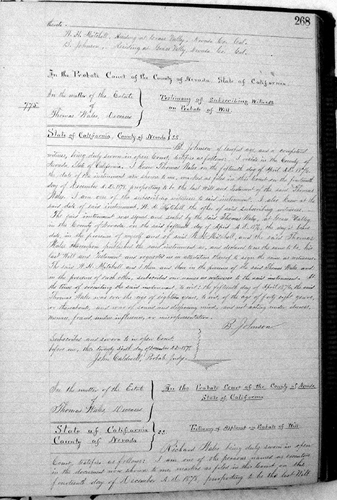 268
W. H. Mitchell, Residing at Grass Valley, Nevada Co. Cal.
B. Johnson, Residing at Grass Valley, Nevada Co. Cal.
In the Probate Court of the County of Nevada, State of California
In the matter of the Estate
of
Thomas Wales Deceased
Testimony of Subscribing Witness
on Probate of Will
State of California, County of Nevada } ss
B. Johnson, of lawful age, and a competent
witness, being duly sworn in open Court, testifies as follows: I reside in the County of
Nevada, State of California. I knew Thomas Wales on the fifteenth day of April A.D. 1876,
the date of the instrument now shown to me, marked as filed in this Court on the fourteenth
day of December A.D. 1878, purporting to be the last Will and Testament of the said Thomas
Wales. I am one of the subscribing witnesses to said instrument. I also knew at the
said date of said instrument, W. H. Mitchell the other of said subscribing witnesses.
The said instrument was signed and sealed by the said Thomas Wales, at Grass Valley
in the County of Nevada on the said fifteenth day of April A.D. 1876, the day it bears
date, in the presence of myself and of said W. H. Mitchell, and the said Thomas
Wales thereupon published the said instrument as, and declared to us the same to be, his
last Will and Testament and requested us in attestation thereof to sign the same as witnesses.
The said W. H. Mitchell and I then and there in the presence of the said Thomas Wales and
in the presence of each other, subscribed our names as witnesses to the said instrument. At
the time of executing the said instrument, to wit: the fifteenth day of April 1876, the said
Thomas Wales was over the age of eighteen years, to wit, of the age of forty eight years,
or thereabouts, and was of sound and disposing mind, and not acting under duress,
menace, fraud, undue influence, or misrepresentation.
B. Johnson
Subscribed and sworn to in open Court
before me, this
John Caldwell, Probate Judge
In the matter of the Estate
of
Thomas Wales Deceased
In the Probate Court of the County of Nevada
State of California
State of California
County of Nevada } ss
Testimony of on Probate of Will
Richard Wales being duly sworn in open
Court, testifies as follows: I am one of the persons named as executors
in the document now shown to me marked as filed in this Court on the
fourteenth day of December A.D. 1878, purporting to be the last Will